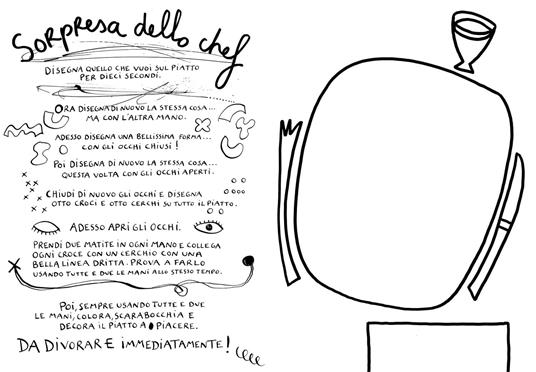 Sorpresa dello chef
DISEGNA QUELLO CHE VUOI SUL PIATTO
PER DIECI SECONDI.
ORA DISEGNA DI NUOVO LA STESSA COSA...
MA CON L'ALTRA MANO.
ADESSO DISEGNA UNA BELLISSIMA FORMA...
CON GLI OCCHI CHIUSI!
POI DISEGNA DI NUOVO LA STESSA COSA...
QUESTA VOLTA CON GLI OCCHI APERTI.
CHIUDI DI NUOVO GLI OCCHI E DISEGNA
OTTO CROCI E OTTO CERCHI SU TUTTO IL PIATTO.
ADESSO APRI GLI OCCHI.
PRENDI DUE MATITE IN OGNI MANO E COLLEGA
OGNI CROCE CON UN CERCHIO CON UNA
BELLA LINEA DRITTA. PROVA A FARLO
USANDO TUTTE E DUE LE MANI ALLO STESSO TEMPO.
POI, SEMPRE USANDO TUTTE E DUE
LE MANI, COLORA, SCARABOCCHIA E
DECORA IL PIATTO A PIACERE.
DA DIVORARE IMMEDIATAMENTE!